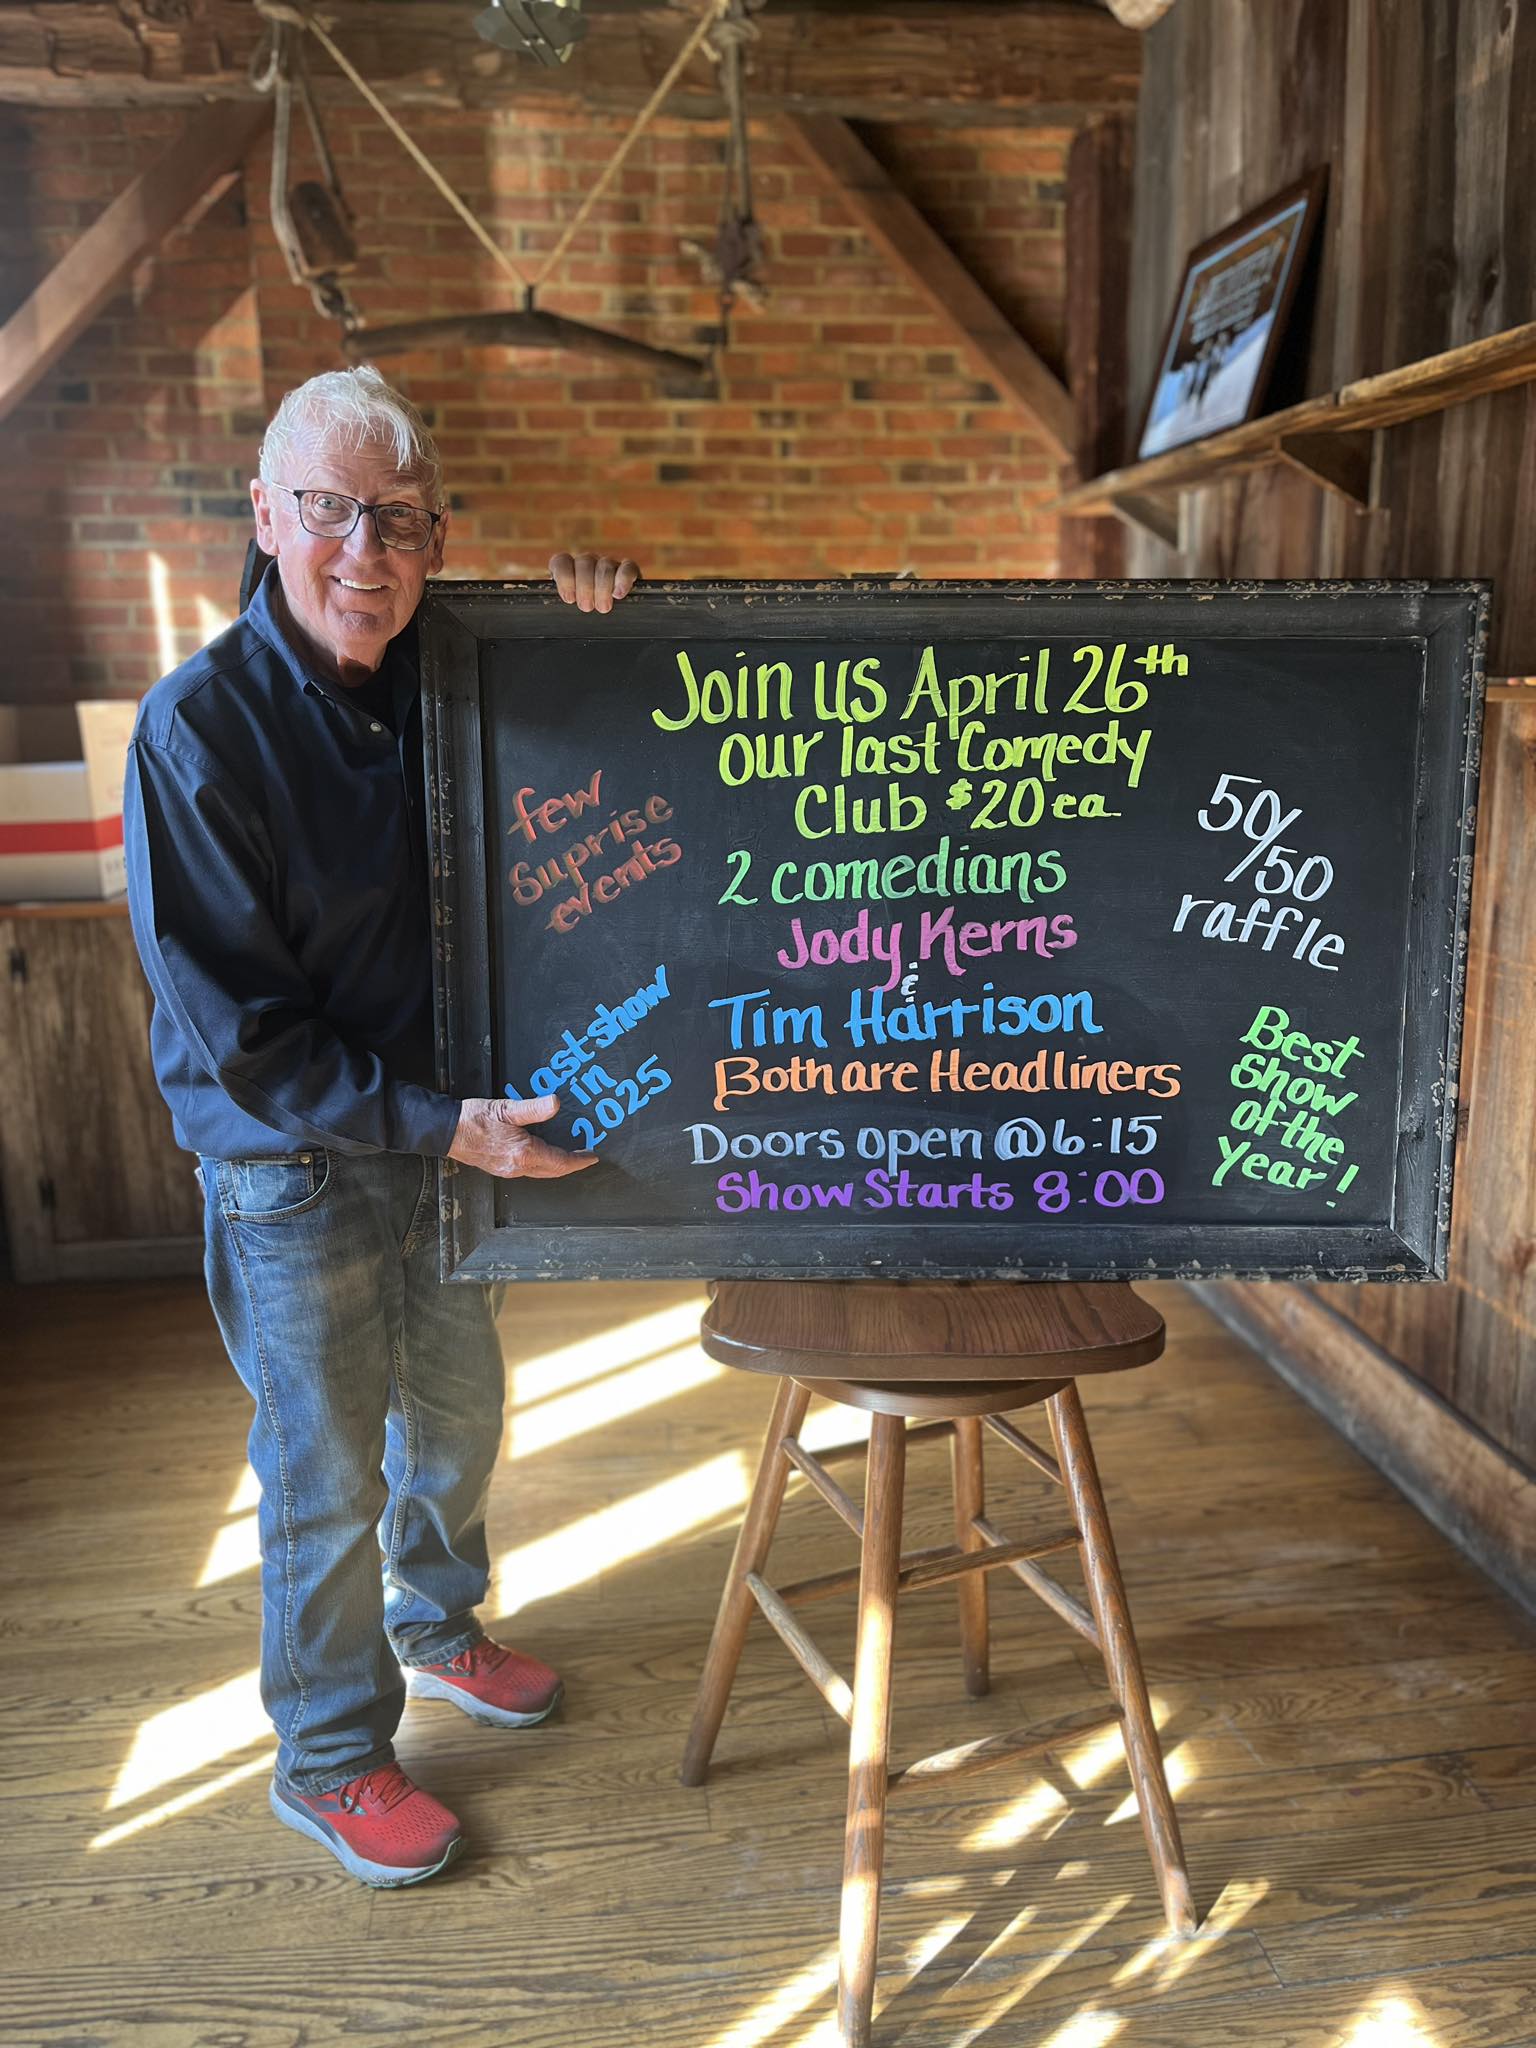 Join us April 26th
Our last Comedy
Club $20 ea.
2 comedians
Jody Kerns
&
Tim Harrison
Both are Headliners
Doors open @ 6:15
Show Starts 8:00
few
Suprise
events
Last show
in
2025
50/50
raffle
Best
Show
of the
Year!